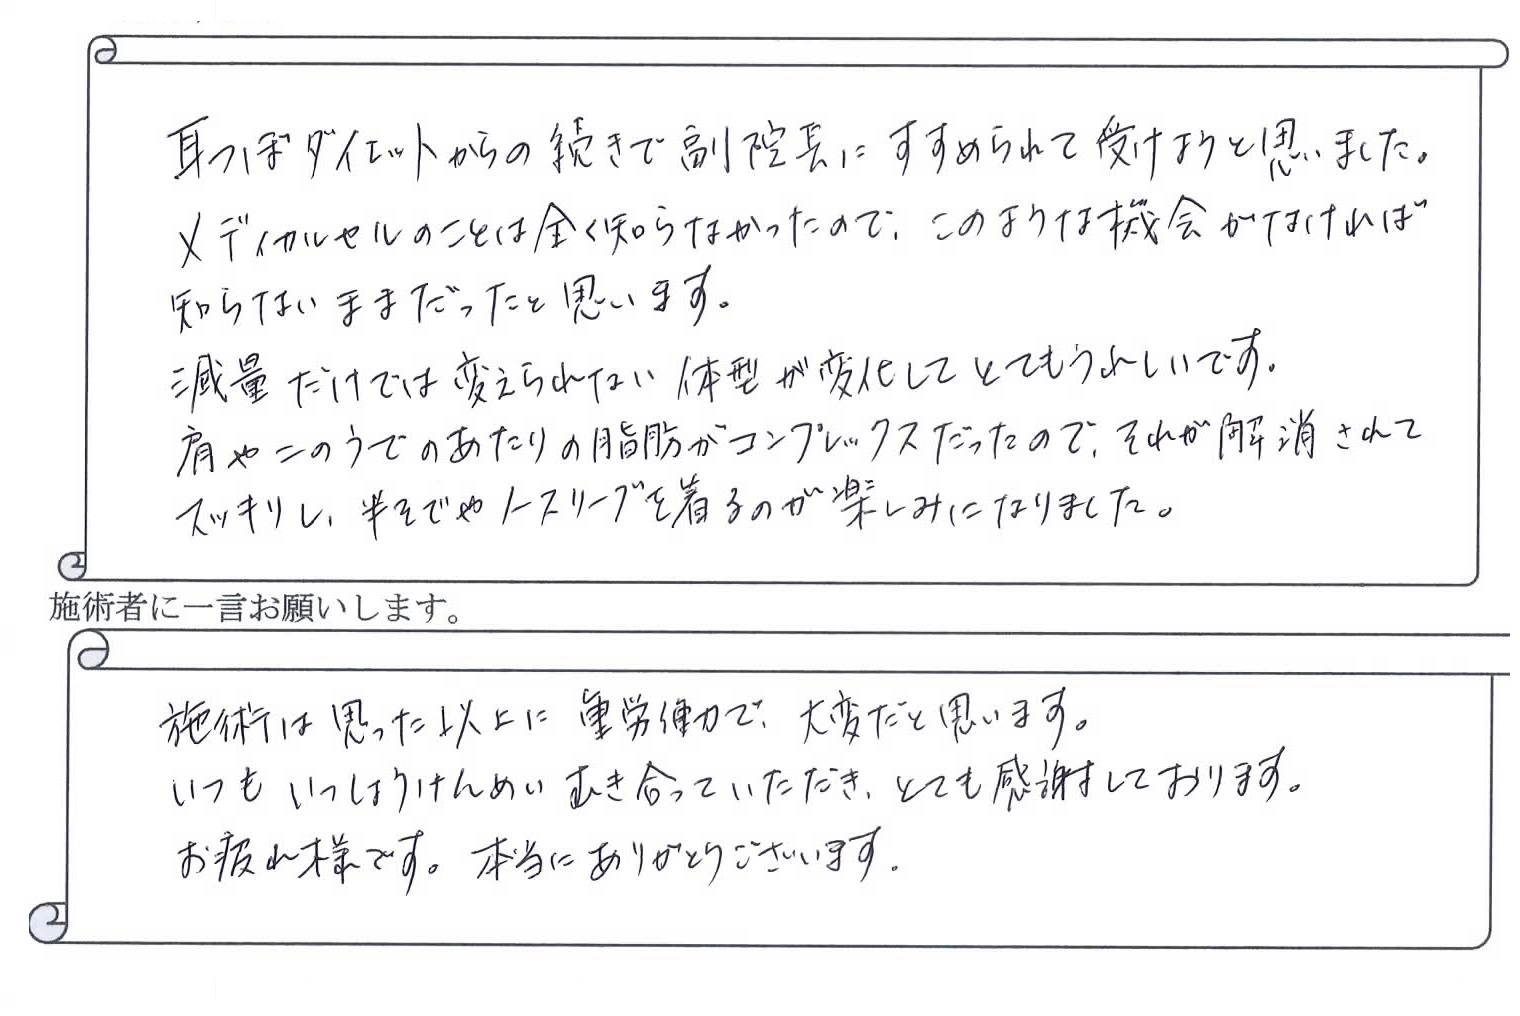 耳つぼダイエットからの続きで副院長にすすめられて受けようと思いました。
メディカルセルのことは全く知らなかったので、このような機会がなければ
知らないままだったと思います。
減量だけでは変えられない体型が変化してとてもうれしいです。
肩や二のうでのあたりの脂肪がコンプレックスだったので、それが解消されて
スッキリし、半そでやノースリーブを着るのが楽しみになりました。
施術者に一言お願いします。
施術は思った以上に重労働力で、大変だと思います。
いつもいっしょうけんめいむき合っていただき、とても感謝しております。
お疲れ様です。本当にありがとうございます。